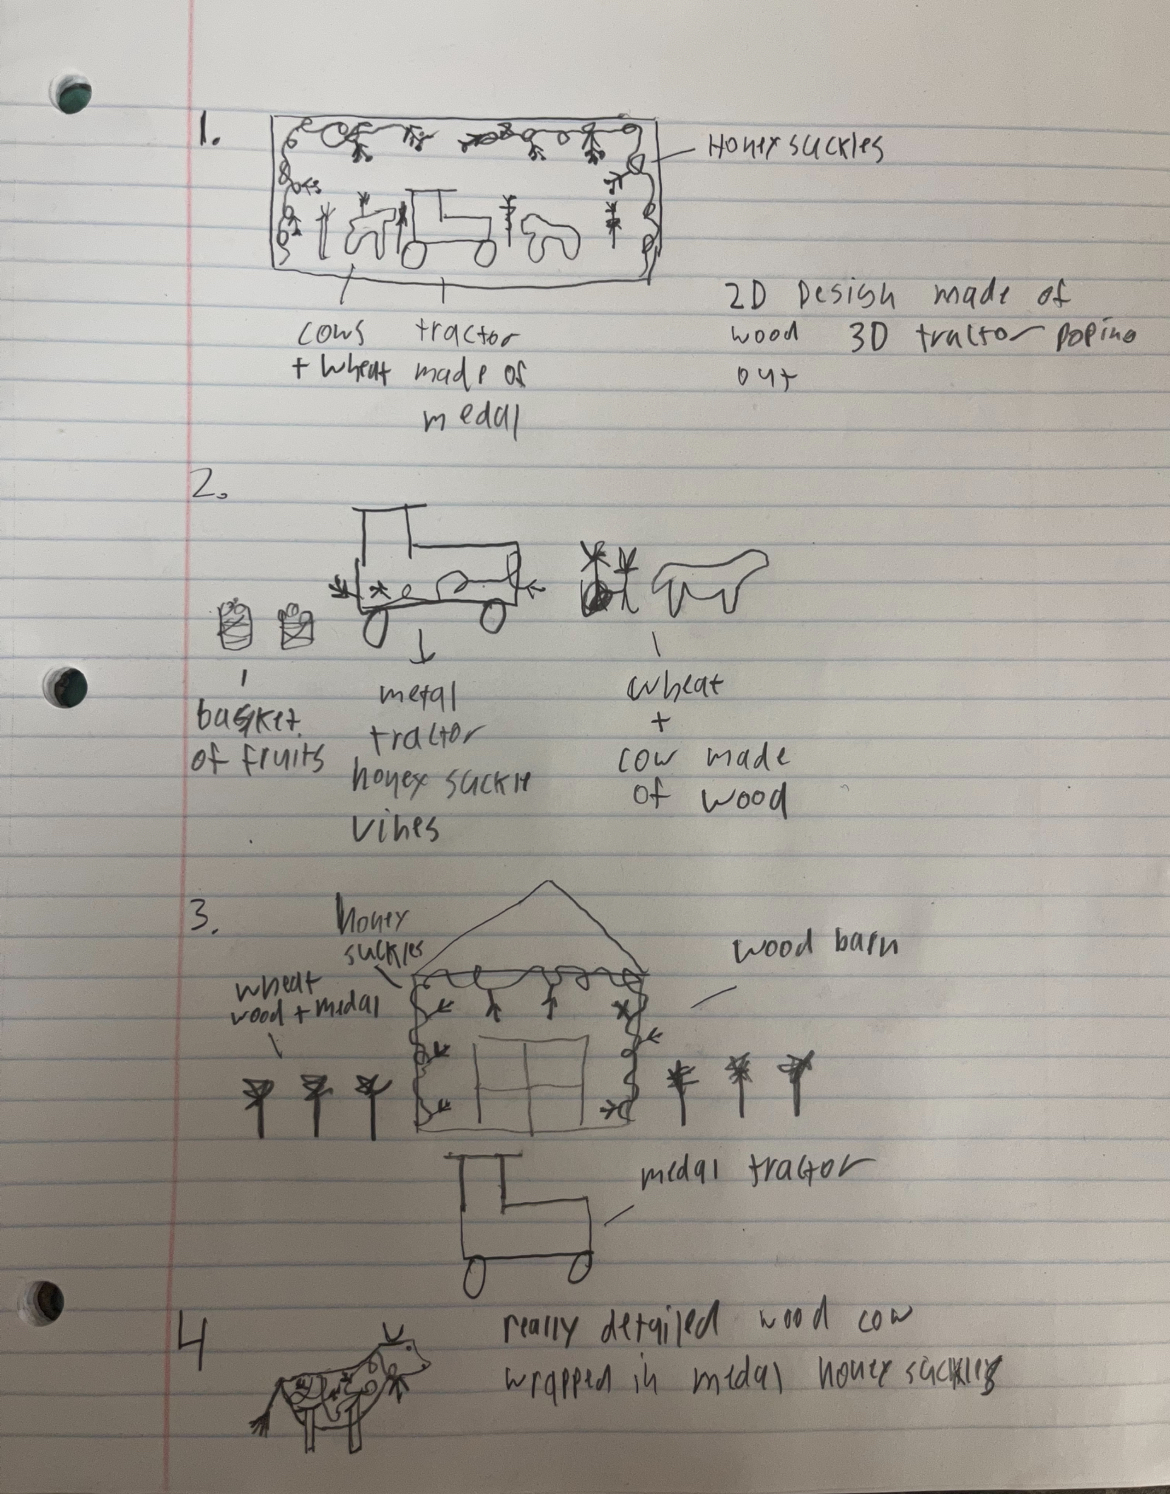 1.
Honeysuckles
2D Design made of
wood 3D tractor poping
out
cows
+ wheat
tractor
made of
medal
2.
basket
of fruits
metal
tractor
honey suckle
vines
wheat
+
cow made
of wood
3.
honey
suckles
wheat
wood + medal
wood barn
medal tractor
4
really detailed wood cow
wrapped in medal honey suckles